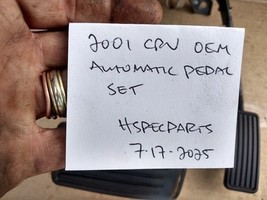 2001 CRV OEM
AUTOMATIC PEDAL
SET
HSPECPARTS
7-17-2025